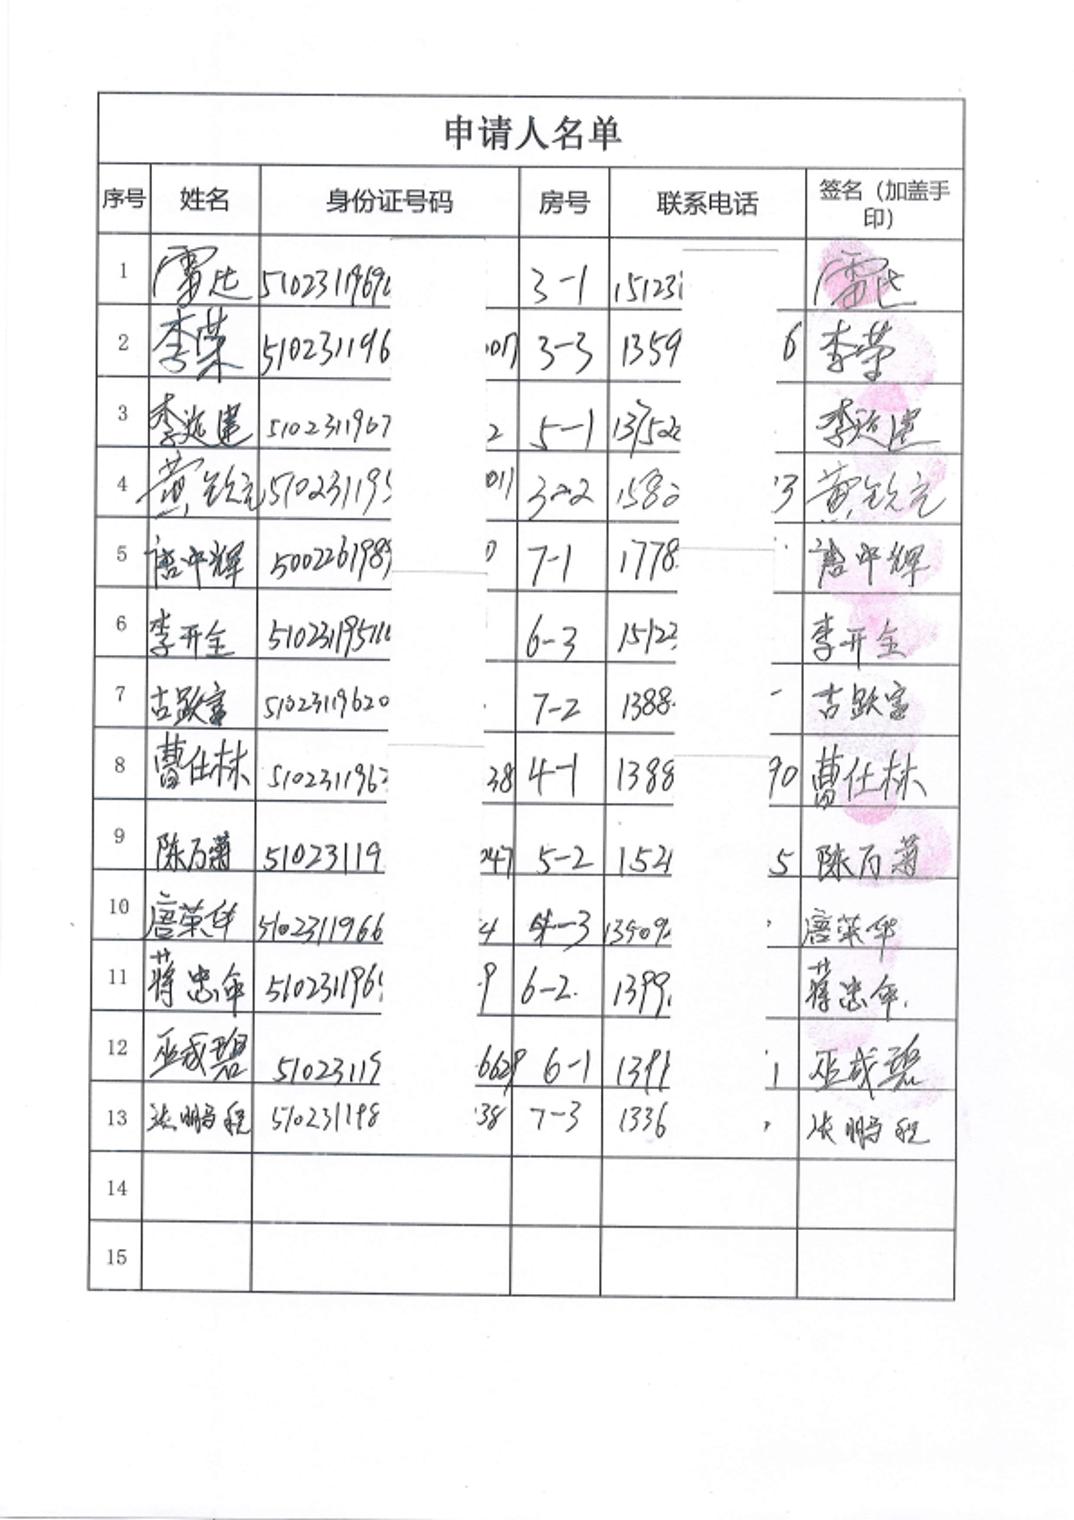 申请人名单
序号 姓名 身份证号码 房号 联系电话 签名（加盖手印）
1 雷 5102311969 3-1 15123 雷
2 李荣 510231196 017 3-3 1359 6 李荣
3 李远建 5102311967 2 5-1 13752 李远建
4 黄钦元 510231195 011 3-2 158 3 黄钦元
5 唐中辉 500226198 0 7-1 1778 唐中辉
6 李开全 510231195 6-3 1512 李开全
7 古跃富 51023119620 7-2 1388 古跃富
8 曹仕林 510231196 38 4-1 1388 90 曹仕林
9 陈万菊 51023119 247 5-2 152 5 陈万菊
10 唐荣华 5102311966 4 4-3 13509 唐荣华
11 蒋忠 510231196 9 6-2 1399 蒋忠
12 巫成碧 51023119 6629 6-1 139 1 巫成碧
13 张鹏程 510231198 38 7-3 1336 张鹏程
14
15